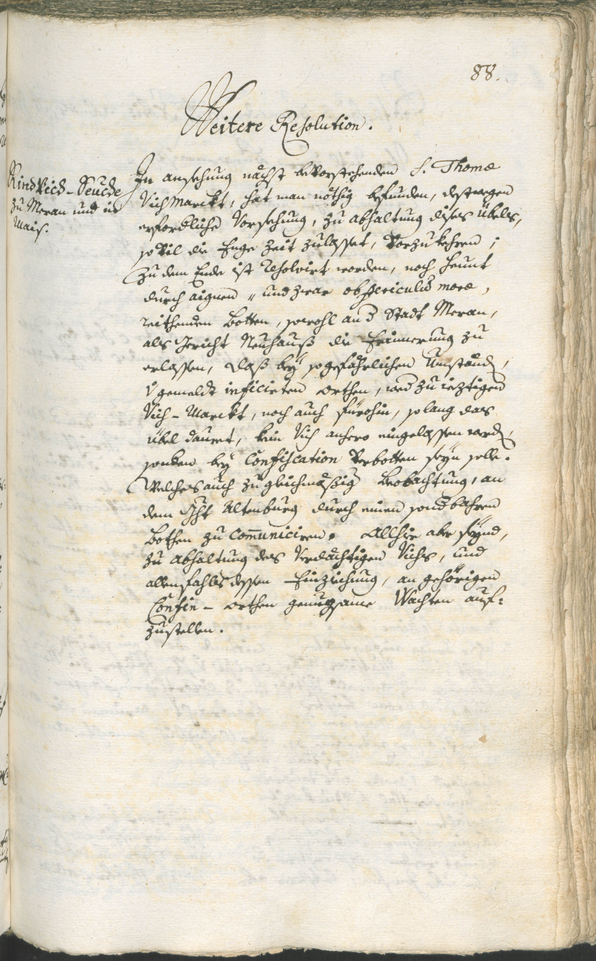 88.
Weitere Resolution.
Rind Viech-Seuche
zu Meran und in
Mais.
In ansechung nächst bevorstehenden S. Thomæ
Viech Marckt, hat man nöthig befunden, destwegen
erforderliche Vorsechung, zu abhaltung dises Übels,
so vil die Enge Zeit zulasset, vorzukehren;
zu dem Ende ist resolvirt worden, noch heunt
durch aignen, und zwar ob periculum moræ,
reithenden Botten, sowohl an d Stadt Meran,
als Gericht Neuhauß die Erinnerung zu
erlassen, daß bey so gefährlichen Umständ,
v gemeldt inficirten Orthen, wed zu ieztigen
Vich-Marckt, noch auch fürohin, so lang das
Übel dauret, kein Vich anhero eingelassen werd,
sondern bey Confiscation verbotten seyn solle.
Welches auch zu gleichmäßig Beobachtung, an
dem Ght Altenburg durch einen sonderbahren
Bothen zu com̅uniciren. Allhie aber seynd,
zu abhaltung des Verdächtigen Vichs, und
allenfahls dessen Einziehung, an gehörigen
Confin-Orthen genugsame Wachten auf=
zustellen.